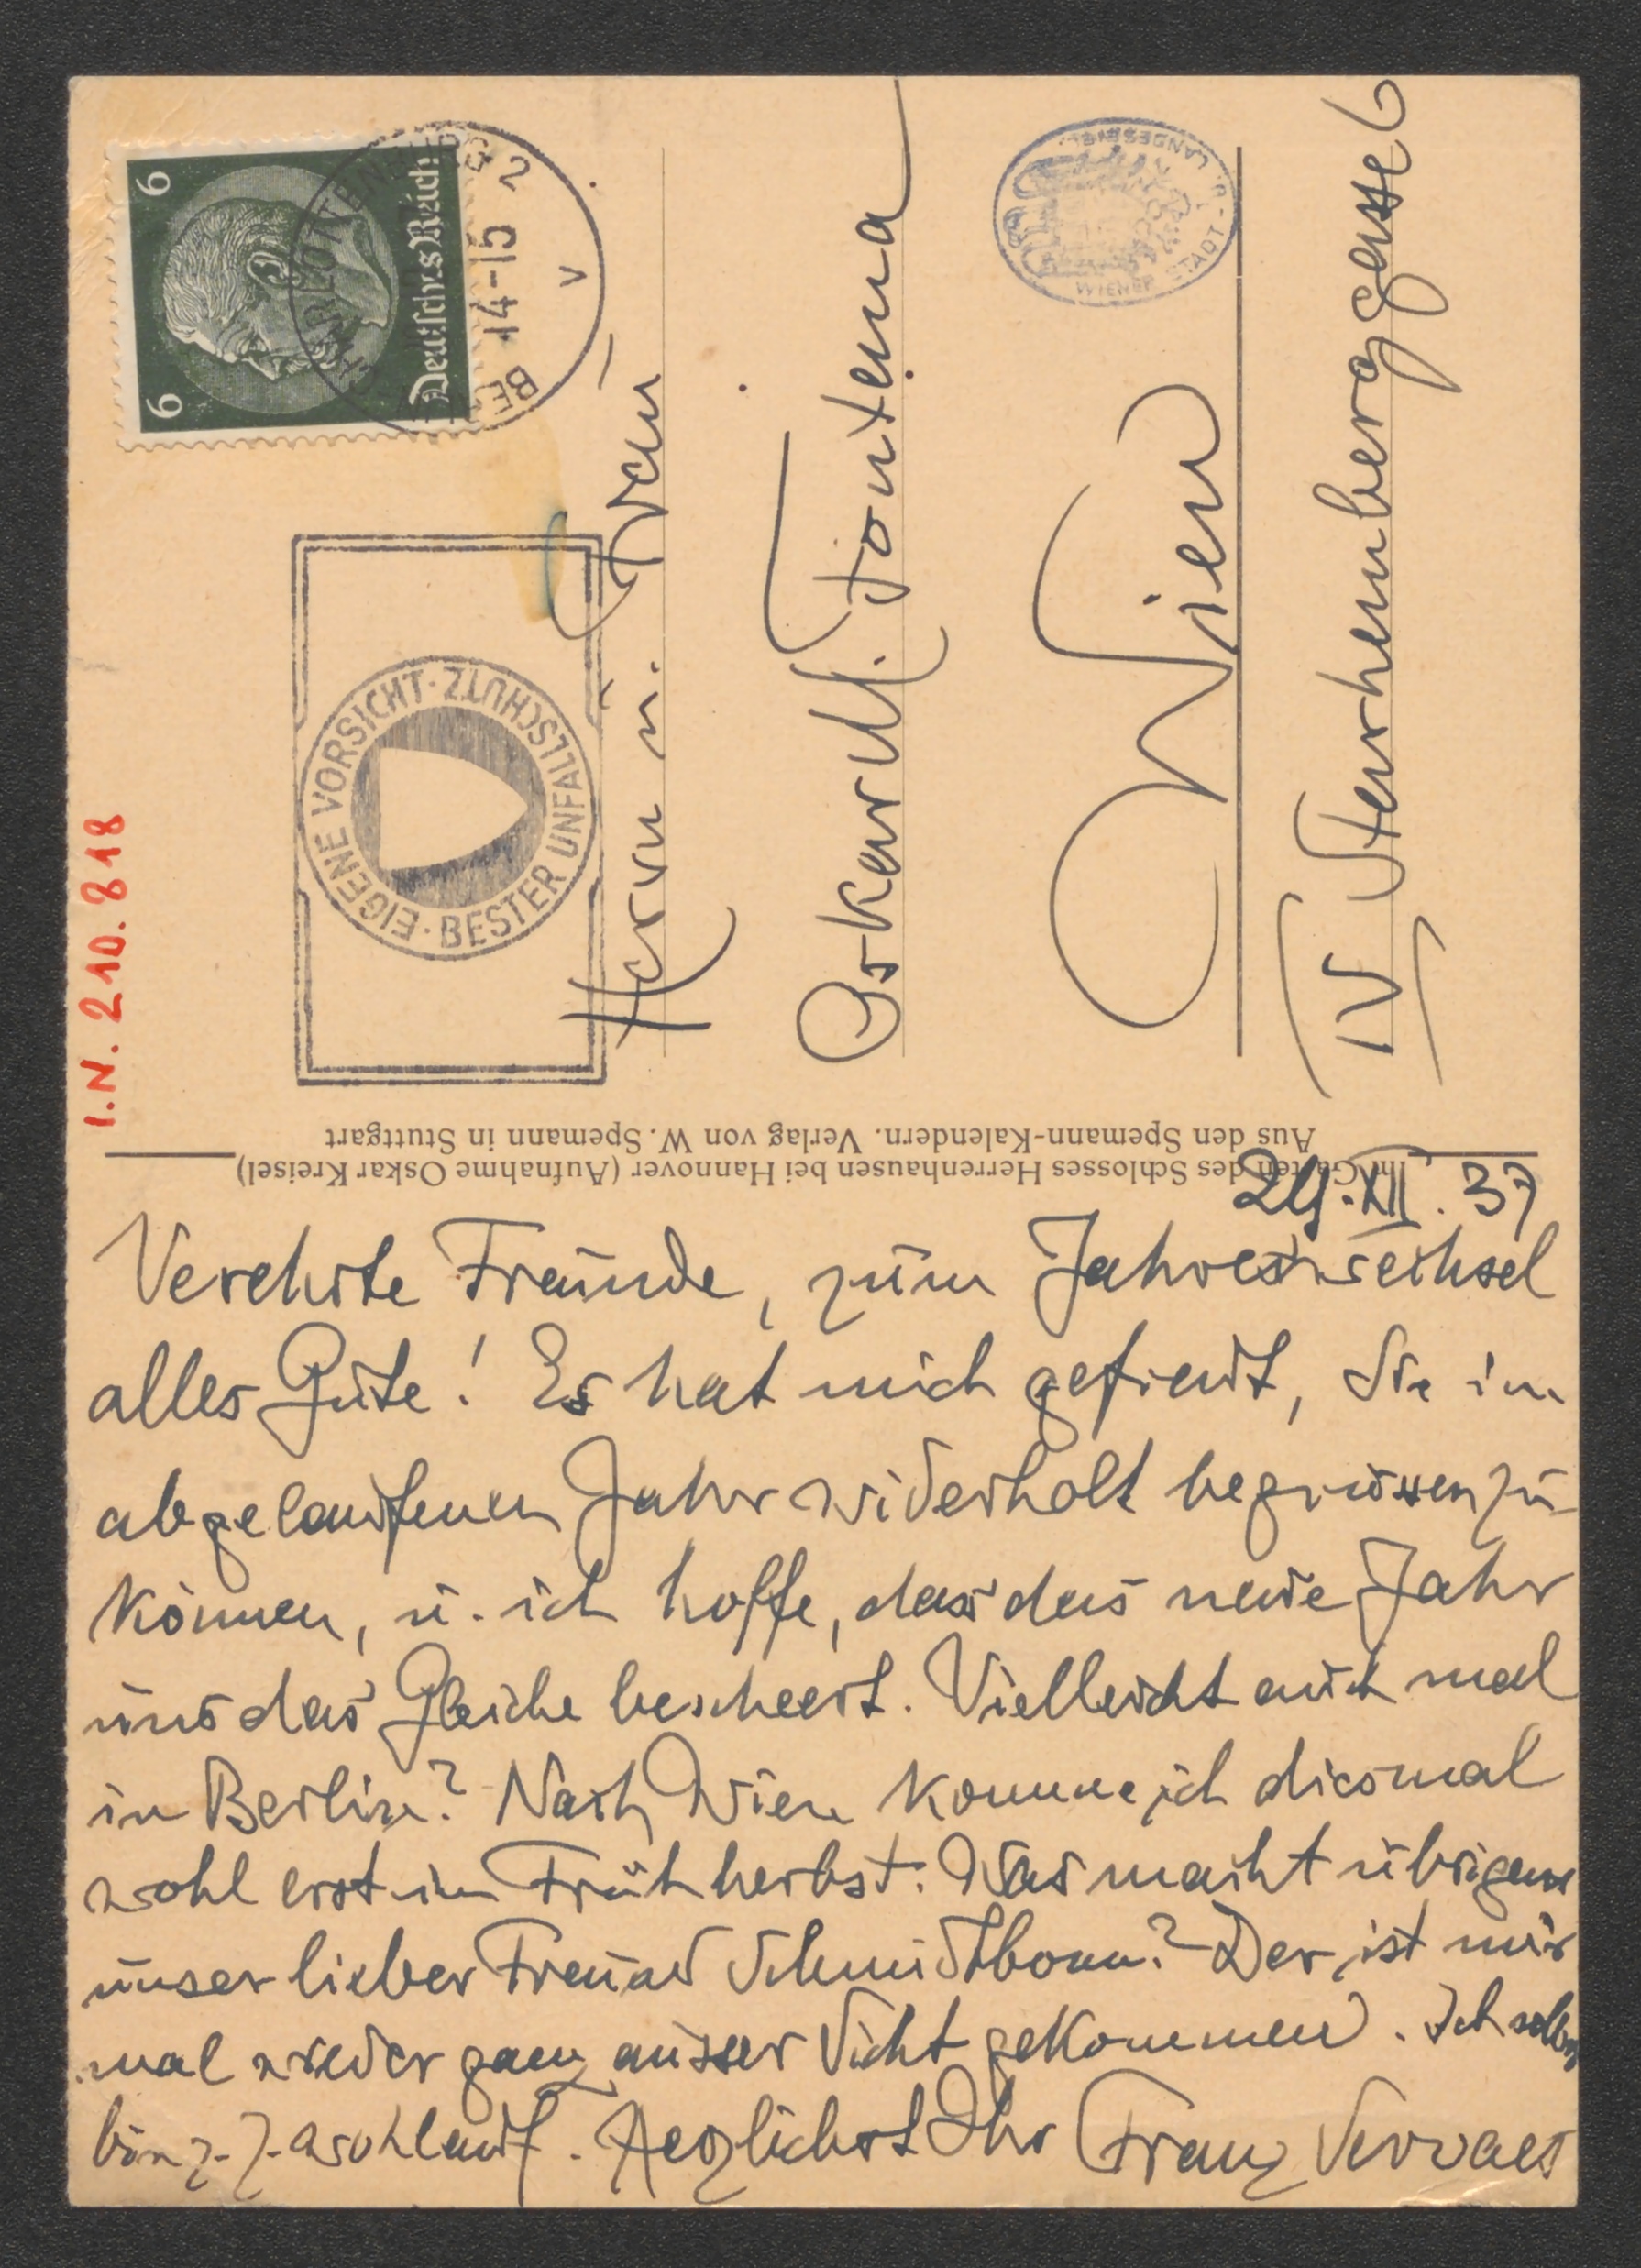 I.N. 210.818
6 6
Deutsches Reich
14-15
EIGENE VORSICHT · BESTER UNFALLSCHUTZ ·
WIENER STADT- U. LANDESBIBL.
Herrn u. Frau
Oskar M. Fontana
Wien
IV Starhemberggasse 6
Im Garten des Schlosses Herrenhausen bei Hannover (Aufnahme Oskar Kreisel)
Aus den Spemann-Kalendern. Verlag von W. Spemann in Stuttgart
29.XII.37
Verehrte Freunde, zum Jahreswechsel
alles Gute! Es hat mich gefreut, Sie im
abgelaufenen Jahr widerholt begrüssen zu
können, u. ich hoffe, dass das neue Jahr
uns das Gleiche bescheert. Vielleicht auch mal
in Berlin? Nach Wien komme ich diesmal
wohl erst im Frühherbst. Was macht übrigens
unser lieber Freund Schmidtbonn? Der ist mir
mal wieder ganz ausser Sicht gekommen. Ich selber
bin z. Z. wohlauf. Herzlichst Ihr Franz Servaes